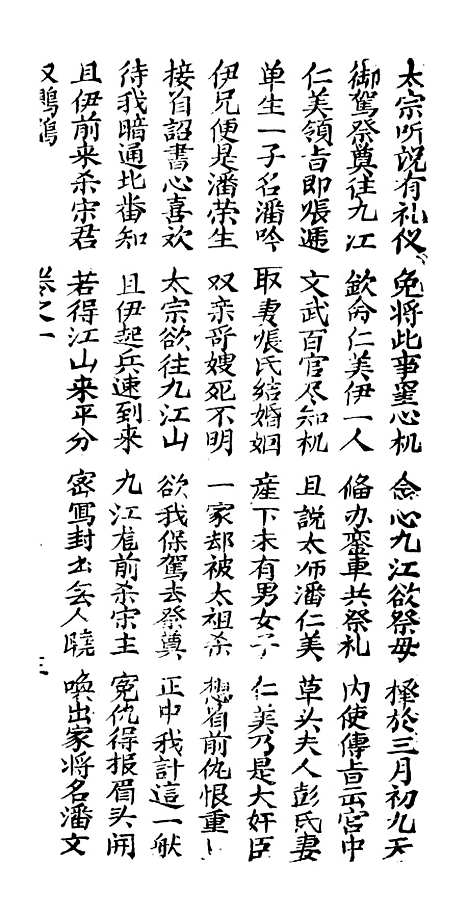 太宗听說有礼仪 免将此事罣心机 念心九江欲祭母 擇於三月初九天
御駕祭奠往九江 欽命仁美伊一人 偹办銮車共祭礼 内使傳旨云宮中
仁美領旨即張遞 文武百官尽知机 且說太师潘仁美 草头夫人彭氏妻
单生一子名潘吟 取妻張氏結婚姻 産下未有男女子 仁美乃是大奸臣
伊兄便是潘荣生 双亲哥嫂死不明 一家却被太祖杀 想着前仇恨重〻
接着詔書心喜欢 太宗欲往九江山 欲我保駕去祭奠 正中我計這一般
待我暗通北畨知 且伊起兵速到来 九江庙前杀宋主 冤仇得报眉头開
且伊前来杀宋君 若得江山来平分 密寫封书无人曉 喚出家将名潘文
卷之一 三